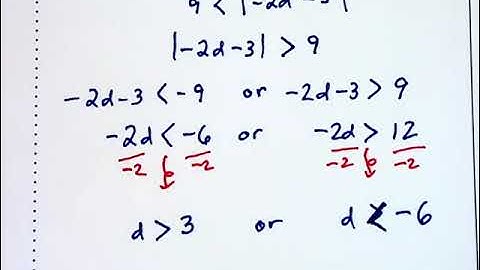 9 < |-2d-3|
|-2d-3| > 9
-2d-3 < -9 or -2d-3 > 9
-2d < -6 or -2d > 12
-2 -2 -2 -2
d > 3 or d < -6